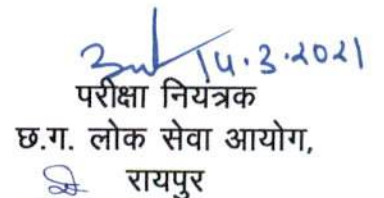 14.3.2021
परीक्षा नियंत्रक
छ.ग. लोक सेवा आयोग,
रायपुर